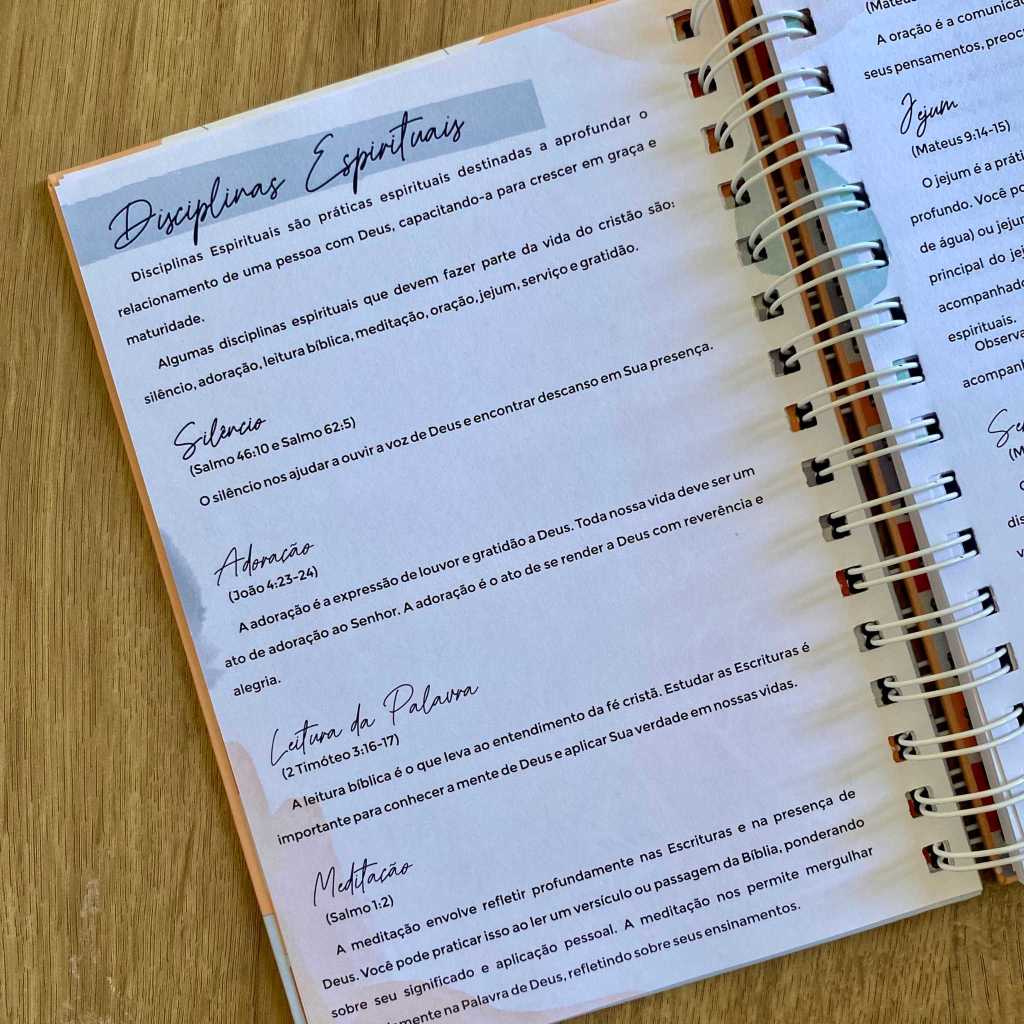 Disciplinas Espirituais
Disciplinas Espirituais são práticas espirituais destinadas a aprofundar o
relacionamento de uma pessoa com Deus, capacitando-a para crescer em graça e
maturidade.
Algumas disciplinas espirituais que devem fazer parte da vida do cristão são:
silêncio, adoração, leitura bíblica, meditação, oração, jejum, serviço e gratidão.
Silêncio
(Salmo 46:10 e Salmo 62:5)
O silêncio nos ajudar a ouvir a voz de Deus e encontrar descanso em Sua presença.
Adoração
(João 4:23-24)
A adoração é a expressão de louvor e gratidão a Deus. Toda nossa vida deve ser um
ato de adoração ao Senhor. A adoração é o ato de se render a Deus com reverência e
alegria.
Leitura da Palavra
(2 Timóteo 3:16-17)
A leitura bíblica é o que leva ao entendimento da fé cristã. Estudar as Escrituras é
importante para conhecer a mente de Deus e aplicar Sua verdade em nossas vidas.
Meditação
(Salmo 1:2)
A meditação envolve refletir profundamente nas Escrituras e na presença de
Deus. Você pode praticar isso ao ler um versículo ou passagem da Bíblia, ponderando
sobre seu significado e aplicação pessoal. A meditação nos permite mergulhar
na Palavra de Deus, refletindo sobre seus ensinamentos.
(Mateus
A oração é a
seus pensamentos,
Jejum
(Mateus 9:14-15)
O jejum é a
profundo. Você
de água) ou
principal do
espirituais.